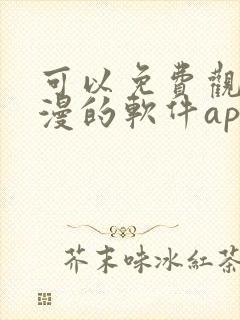 可以免費觀
漫的軟件ap
芥末味冰紅茶